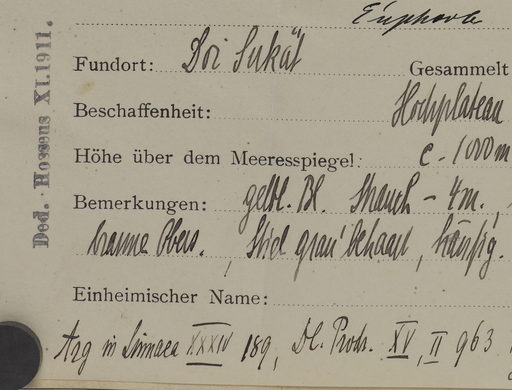 Euphorb
Fundort: Doi Sukät Gesammelt
Beschaffenheit: Hochplateau
Höhe über dem Meeresspiegel: c. 1000 m
Bemerkungen: gelbl. Bl. Strauch – 4 m.,
braune Obers., Stiel grau behaart, häufig.
Einheimischer Name:
Arg in Linnaea XXXIV 189, DC. Prodr. XV, II 963
Ded. Hosseus XI.1911.